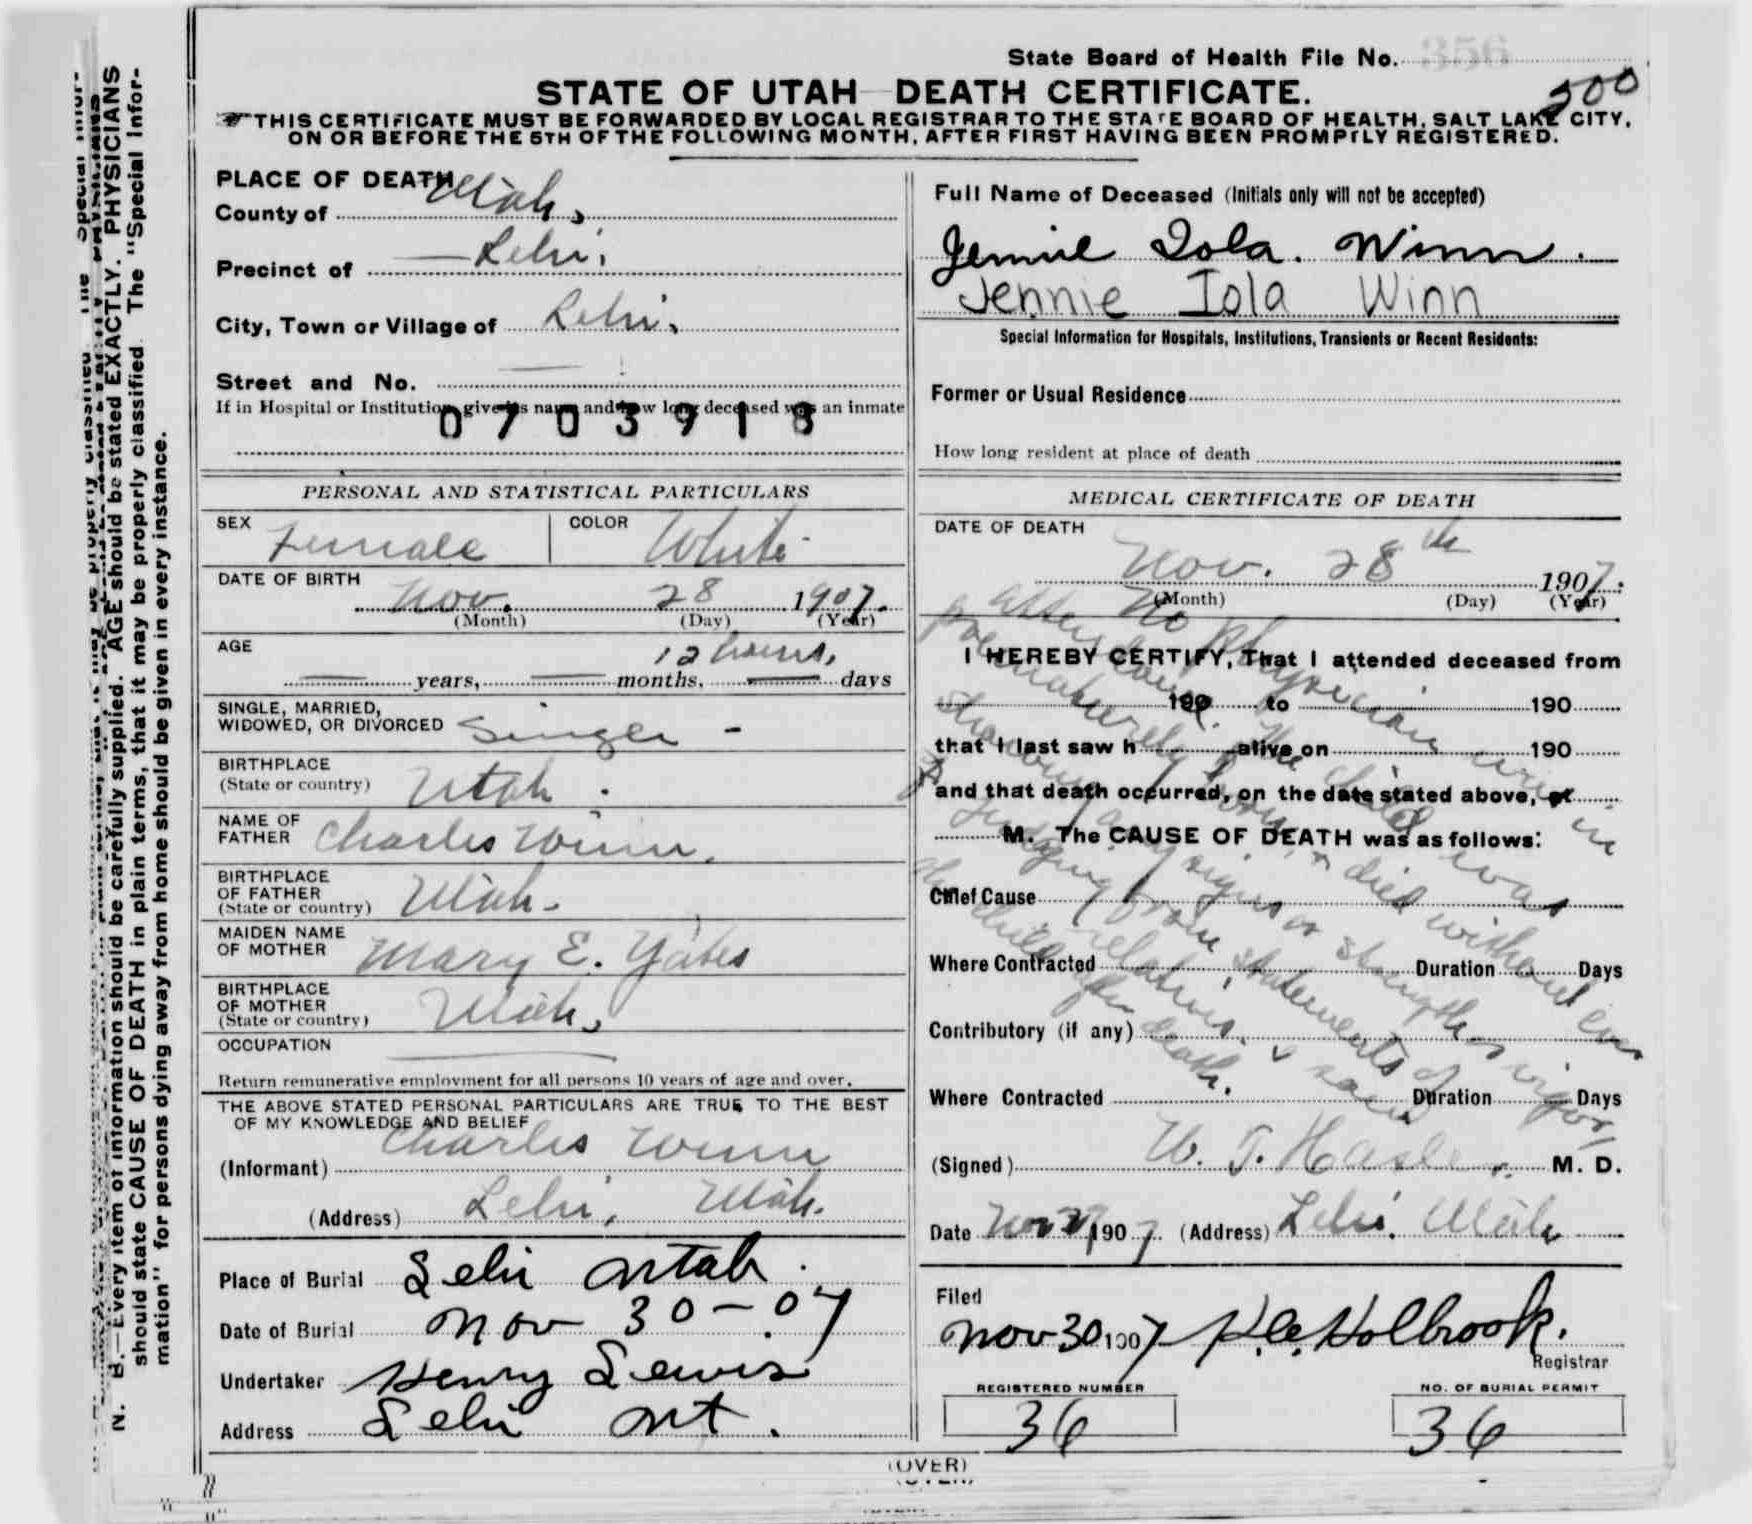 State Board of Health File No. 356
500
STATE OF UTAH DEATH CERTIFICATE.
THIS CERTIFICATE MUST BE FORWARDED BY LOCAL REGISTRAR TO THE STATE BOARD OF HEALTH, SALT LAKE CITY,
ON OR BEFORE THE 5TH OF THE FOLLOWING MONTH, AFTER FIRST HAVING BEEN PROMPTLY REGISTERED.
PLACE OF DEATH
County of Utah,
Precinct of Lehi,
City, Town or Village of Lehi,
Street and No.
If in Hospital or Institution, give its name and how long deceased was an inmate
0703918
PERSONAL AND STATISTICAL PARTICULARS
SEX Female COLOR White
DATE OF BIRTH Nov. 28 1907.
(Month) (Day) (Year)
AGE 12 hours,
years, months, days
SINGLE, MARRIED,
WIDOWED, OR DIVORCED Singel -
BIRTHPLACE
(State or country) Utah.
NAME OF
FATHER Charles Winn.
BIRTHPLACE
OF FATHER
(State or country) Utah-
MAIDEN NAME
OF MOTHER Mary E. Yates
BIRTHPLACE
OF MOTHER
(State or country) Utah,
OCCUPATION
Return remunerative employment for all persons 10 years of age and over.
THE ABOVE STATED PERSONAL PARTICULARS ARE TRUE TO THE BEST
OF MY KNOWLEDGE AND BELIEF
(Informant) Charles Winn
(Address) Lehi, Utah.
Place of Burial Lehi Utah.
Date of Burial Nov 30-07
Undertaker Henry Lewis
Address Lehi Ut.
Full Name of Deceased (Initials only will not be accepted)
Jennie Iola. Winn.
Jennie Iola Winn
Special Information for Hospitals, Institutions, Transients or Recent Residents:
Former or Usual Residence
How long resident at place of death
MEDICAL CERTIFICATE OF DEATH
DATE OF DEATH
Nov. 28th 1907.
(Month) (Day) (Year)
I HEREBY CERTIFY, That I attended deceased from
190 to 190
that I last saw h alive on 190
and that death occurred, on the date stated above, at
M. The CAUSE OF DEATH was as follows:
Chief Cause
Where Contracted Duration Days
Contributory (if any)
Where Contracted Duration Days
No physician was in
attendance. The child was
prematurely born, & died without ever
showing any signs or strength or vigor,
Judging from statements of
relatives. I saw
the child after death.
(Signed) W. T. Hasler. M. D.
Date Nov 1907. (Address) Lehi, Utah
Filed
Nov 30 1907 Registrar
REGISTERED NUMBER
36
NO. OF BURIAL PERMIT
36
(OVER)
N. B.—Every item of information should be carefully supplied. AGE should be stated EXACTLY. PHYSICIANS
should state CAUSE OF DEATH in plain terms, that it may be properly classified. The "Special Infor-
mation" for persons dying away from home should be given in every instance.